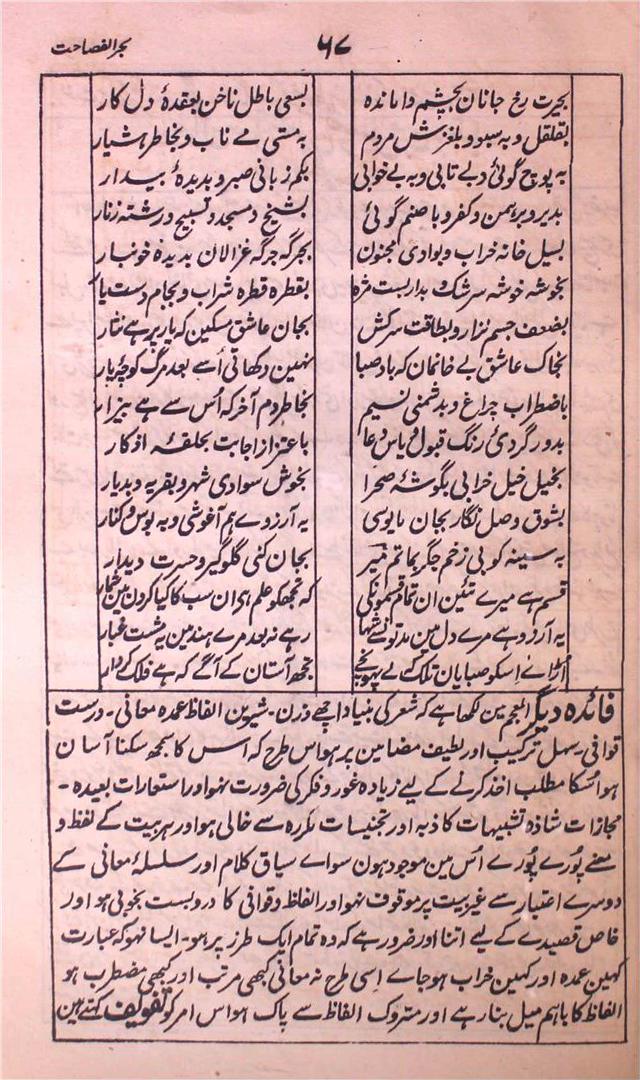 بحر الفصاحت
۶۸
بحیرت رخ جانان بچشم وا ماندہ
بسعی باطل ناخن بعقدۂ دل کار
بقلقل و بہ سبو و بلغزش مردم
بہ مستی مے ناب و بخاطر ہشیار
بہ پوچ گوئی و بے تابی و بہ بے خوابی
بکم زبانی صبر و بدیدۂ بیدار
بدیر و برہمن و کفر و با صنم گوئی
بشیخ و مسجد و تسبیح و رشتہ زنار
بسیل خانہ خراب و بوادی مجنون
بجرگہ جرگہ غزالان بدیدۂ خونبار
بخوشہ خوشہ سرشک و بدار بست مژہ
بقطرہ قطرہ شراب و بجام دست
بضعف جسم نزار و بطاقت سرکش
بجان عاشق مسکین کہ یار پر ہے نثار
بخاک عاشق بے خانمان کہ باد صبا
نہین دکھاتی اُسے بعد مرگ کوچۂ یار
باضطراب چراغ و بدشمنی نسیم
بخاطر دم آخر کہ اُس سے ہے بیزار
بدور گردی رنگ قبول و یاس دعا
باعتزاز اجابت بحلقۂ اذکار
بخیل خیل خرابی بگوشۂ صحرا
بخوش سوادی شہر و بقریہ و بدیار
بشوق وصل نگار بجان مایوسی
بہ آرزوے ہم آغوشی و بہ بوس و کنار
بہ سینہ کوبی زخم جگر بماتم
بجان کنی گلوگیر و حسرت دیدار
قسم ہے میرے تئین ان تمام قسمونکی
کہ تجھکو علم ہی ان سب کا کیا کرون مین
یہ آرزو ہے مرے دل مین مدتونسے شہا
رہے نہ بعد مرے ہند مین یہ مشت غبار
اُڑاے اِسکو صبا یان تلک کہ لے پہونچے
تجھ آستان کے آگے کہ ہے فلک کردار
فائدہ دیگر المعجم مین لکھا ہے کہ شعر کی بنیاد اچھے وزن۔ شیرین الفاظ عمدہ معانی۔ درست
قوافی۔ سہل ترکیب اور لطیف مضامین پر ہو اس طرح کہ اس کا سمجھ سکنا آسان
ہو اُسکا مطلب اخذ کرنے کے لیے زیادہ غور و فکر کی ضرورت نہو اور استعارات بعیدہ۔
مجازات شاذہ تشبیہات کاذبہ اور تجنیسات مکررہ سے خالی ہو اور ہر بیت کے لفظ و
معنے پُورے پُورے اُس مین موجود ہون سواے سیاق کلام اور سلسلۂ معانی کے
دوسرے اعتبار سے غیر بیت پر موقوف نہو اور الفاظ و قوافی کا دروبست بخوبی ہو اور
خاص قصیدے کے لیے اتنا اور ضرور ہے کہ وہ تمام ایک طرز پر ہو۔ ایسا نہو کہ عبارت
کہین عمدہ اور کہین خراب ہو جاے اِسی طرح نہ معانی کبھی مرتب اور کبھی مضطرب ہو
الفاظ کا باہم میل بنا رہے اور متروک الفاظ سے پاک ہو اس امر کو تفویف کہتے ہین